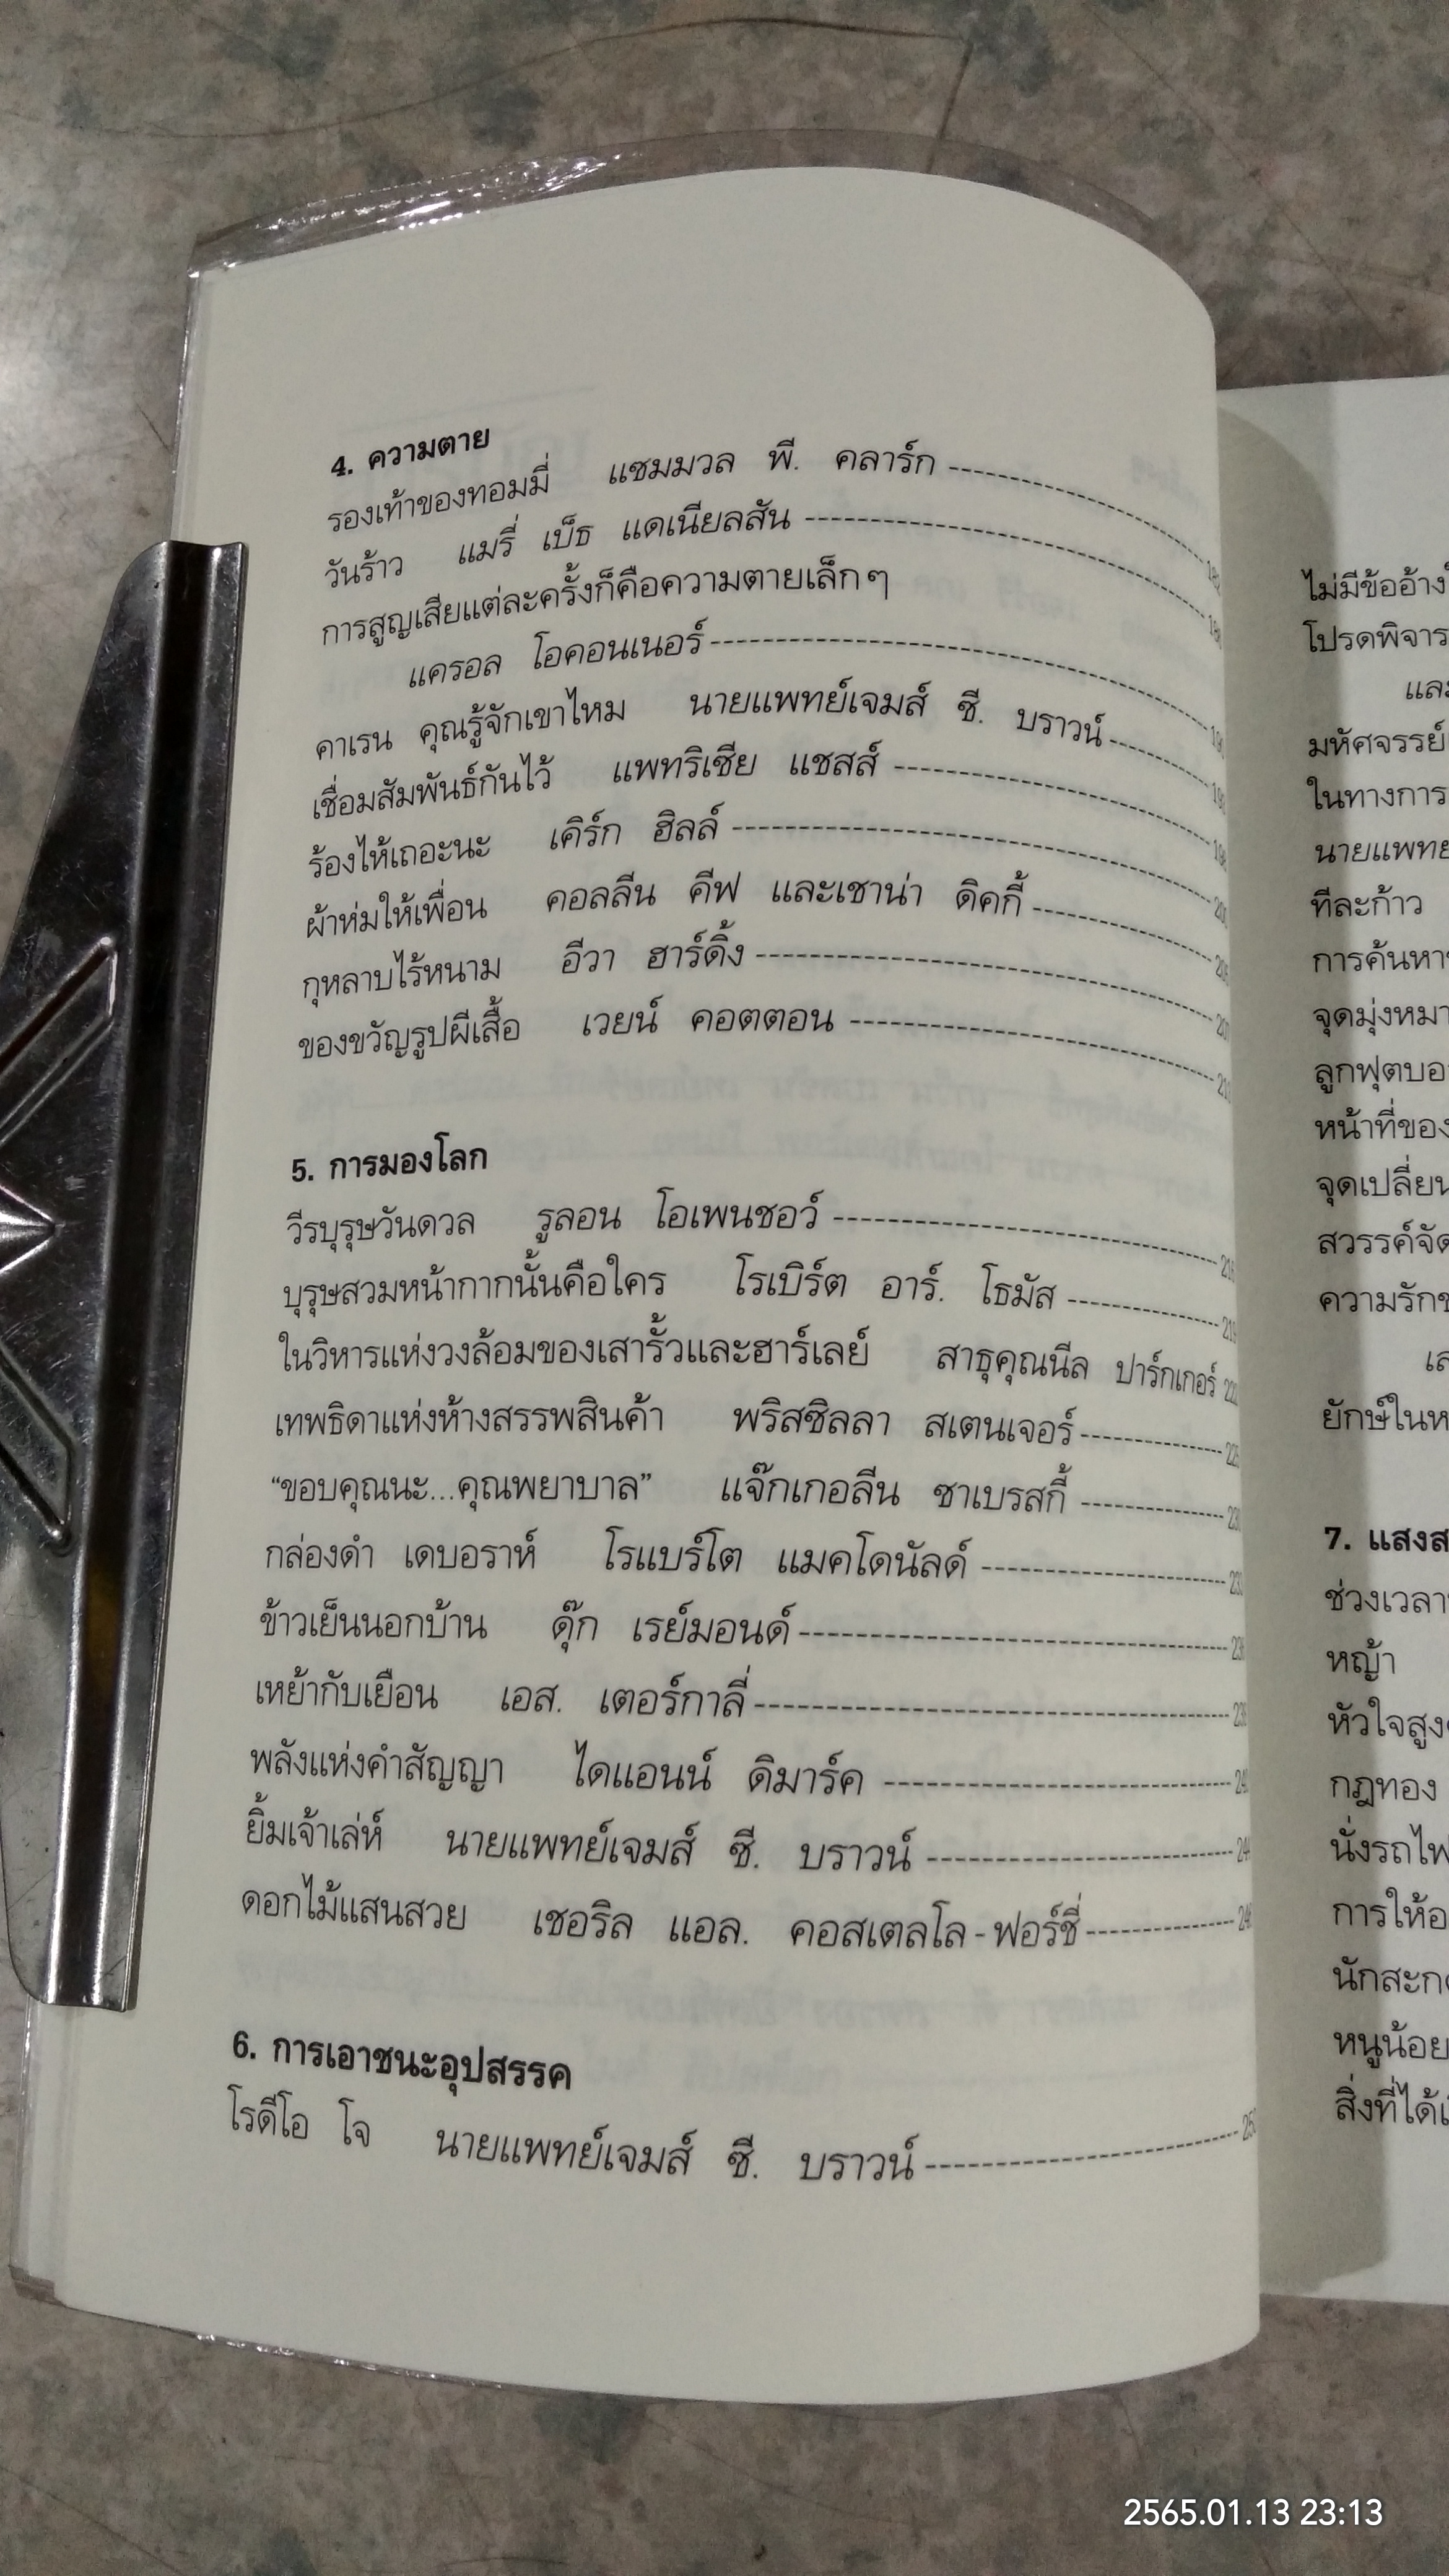 4. ความตาย
รองเท้าของทอมมี่ แซมมวล พี. คลาร์ก
วันร้าว แมรี่ เบ็ธ แดเนียลสัน
การสูญเสียแต่ละครั้งก็คือความตายเล็กๆ
แครอล โอคอนเนอร์
คาเรน คุณรู้จักเขาไหม นายแพทย์เจมส์ ซี. บราวน์
เชื่อมสัมพันธ์กันไว้ แพทริเซีย แชสส์
ร้องไห้เถอะนะ เคิร์ก ฮิลล์
ผ้าห่มให้เพื่อน คอลลีน คีฟ และเชาน่า ดิคกี้
กุหลาบไร้หนาม อีวา ฮาร์ดิ้ง
ของขวัญรูปผีเสื้อ เวยน์ คอตตอน
5. การมองโลก
วีรบุรุษวันดวล รูลอน โอเพนชอว์
บุรุษสวมหน้ากากนั้นคือใคร โรเบิร์ต อาร์. โธมัส
ในวิหารแห่งวงล้อมของเสารั้วและฮาร์เลย์ สาธุคุณนีล ปาร์กเกอร์
เทพธิดาแห่งห้างสรรพสินค้า พริสซิลลา สเตนเจอร์
“ขอบคุณนะ...คุณพยาบาล” แจ๊กเกอลีน ซาเบรสกี้
กล่องดำ เดบอราห์ โรแบร์โต แมคโดนัลด์
ข้าวเย็นนอกบ้าน ดุ๊ก เรย์มอนด์
เหย้ากับเยือน เอส. เตอร์กาลี่
พลังแห่งคำสัญญา ไดแอนน์ ดิมาร์ค
ยิ้มเจ้าเล่ห์ นายแพทย์เจมส์ ซี. บราวน์
ดอกไม้แสนสวย เชอริล แอล. คอสเตลโล-ฟอร์ชี่
6. การเอาชนะอุปสรรค
โรดีโอ โจ นายแพทย์เจมส์ ซี. บราวน์
ไม่มีข้ออ้าง
โปรดพิจาร
และ
มหัศจรรย์
ในทางการ
นายแพทย
ทีละก้าว
การค้นหา
จุดมุ่งหมา
ลูกฟุตบอ
หน้าที่ของ
จุดเปลี่ยน
สวรรค์จัด
ความรักข
เส
ยักษ์ในห
7. แสงส
ช่วงเวลา
หญ้า
หัวใจสูง
กฎทอง
นั่งรถไฟ
การให้อ
นักสะก
หนูน้อย
สิ่งที่ได้
2565.01.13 23:13